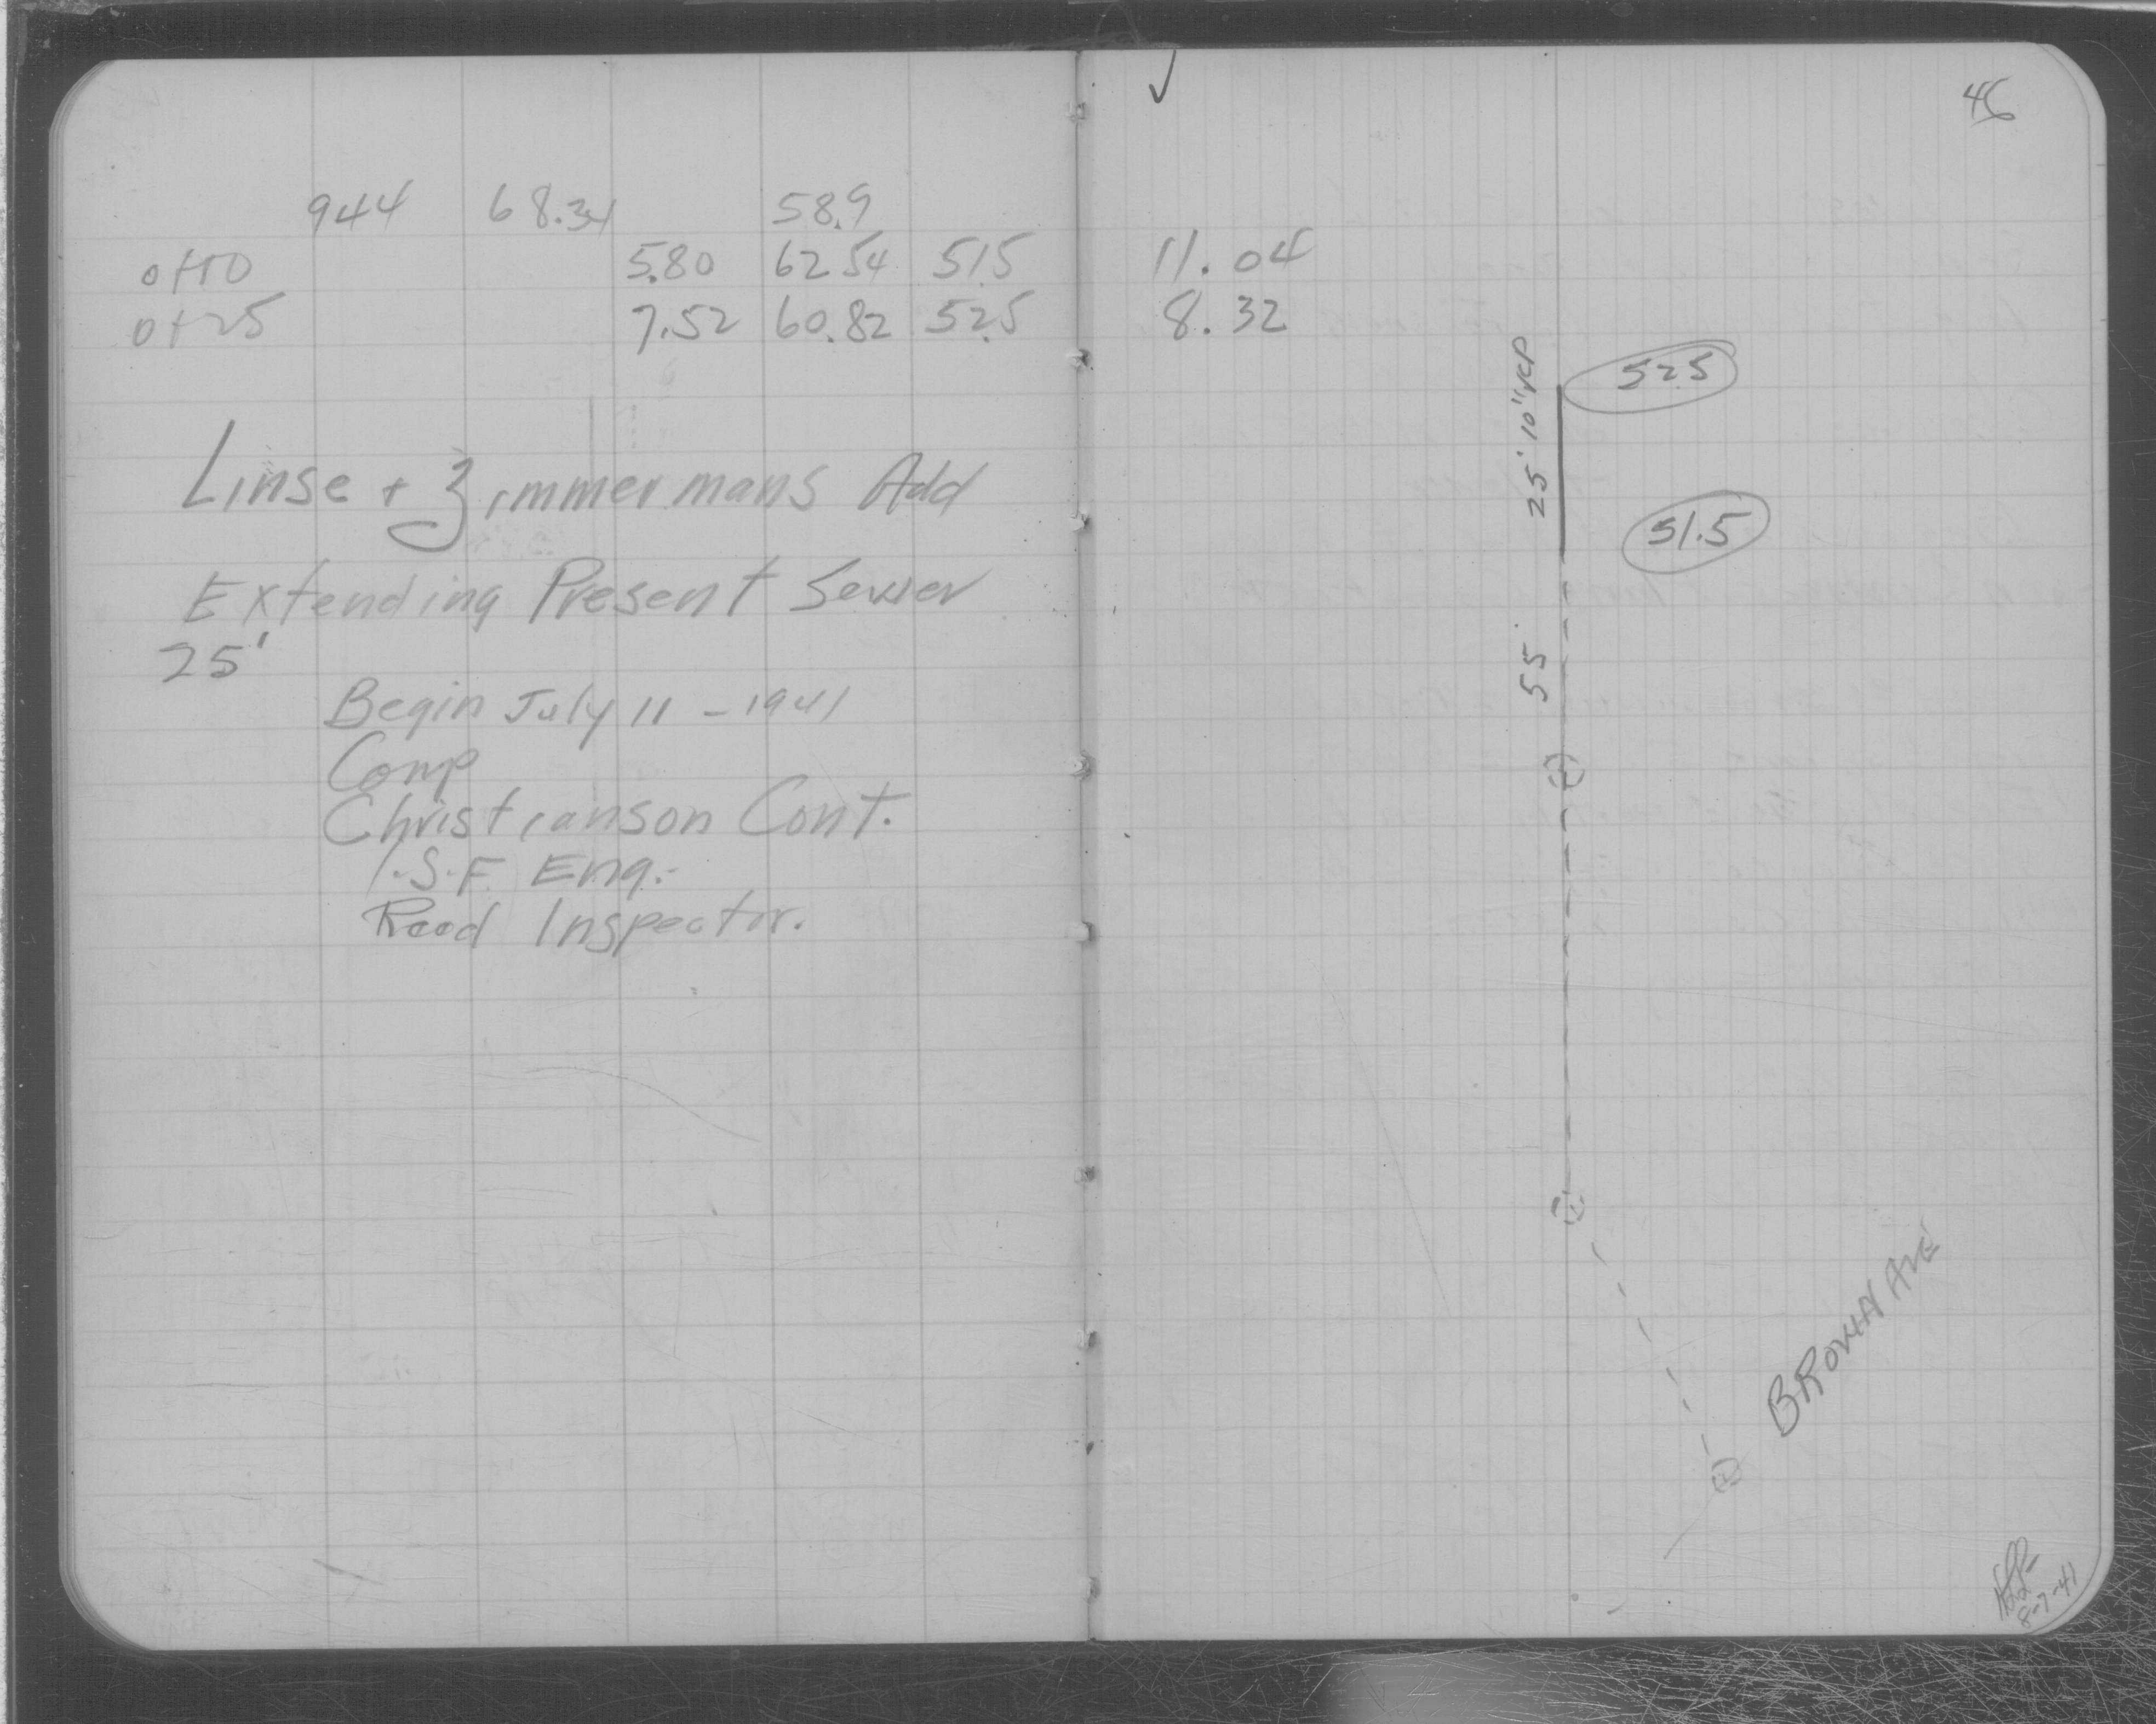 944 68.34 58.9
0+00 5.80 62.54 51.5
0+25 7.52 60.82 52.5
Linse + Zimmermans Add
Extending Present Sewer
25'
Begin July 11 - 1941
Comp
Christianson Cont.
I.S.F. Eng.
Reed Inspector.
46
11.04
8.32
25' 10" VCP
52.5
51.5
55
BROWN AVE
8-7-41